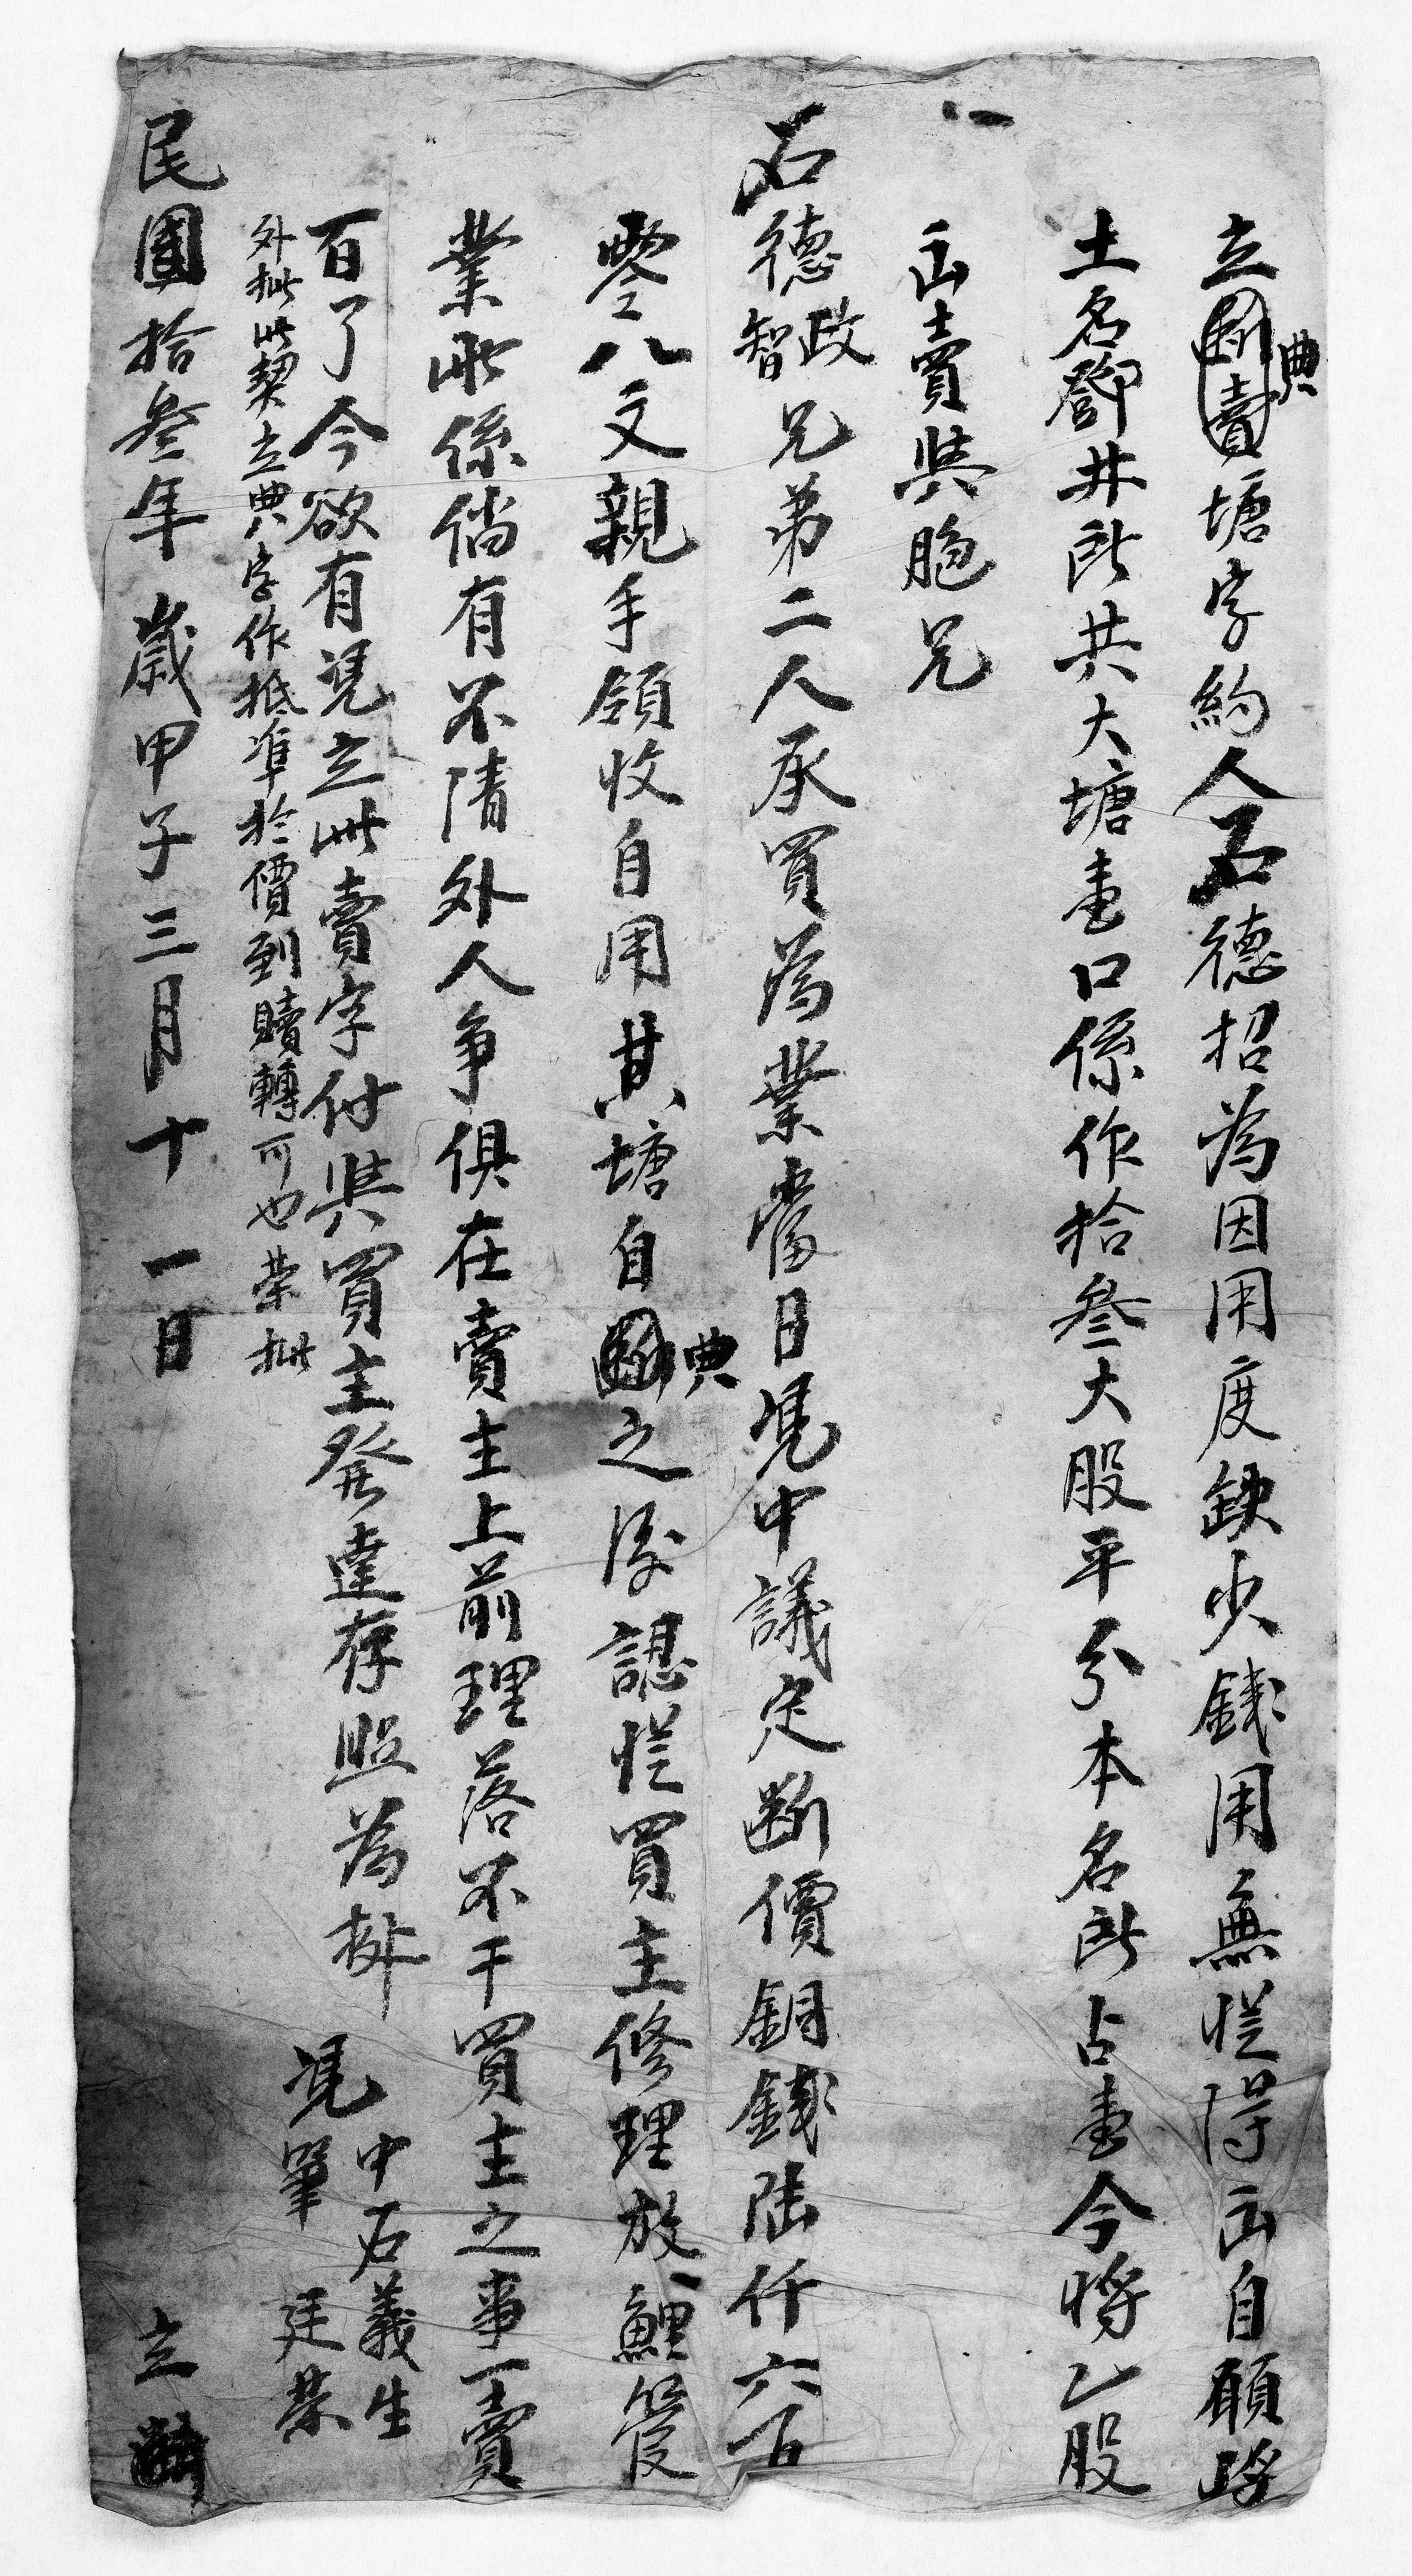 立斷賣典塘字約人石德招為因用度缺少錢用無從得出自願將
土名鄧井所共大塘壹口係作拾叁大股平分本名所占壹今將乙股
出賣與胞兄
石德政智兄弟二人承買為業當日凴中議定斷價銅錢陆仟六百
零八文親手領收自用其塘自斷典之後認從買主修理放鯉管
業此係倘有不清外人爭俱在賣主上前理落不干買主之事一賣
百了今欲有凴立此賣字付與買主發達存照為據
凴中石義生
筆廷榮
外批此契立典字作抵準於價到贖轉可也榮批
民國拾叁年歲甲子三月十一日 立